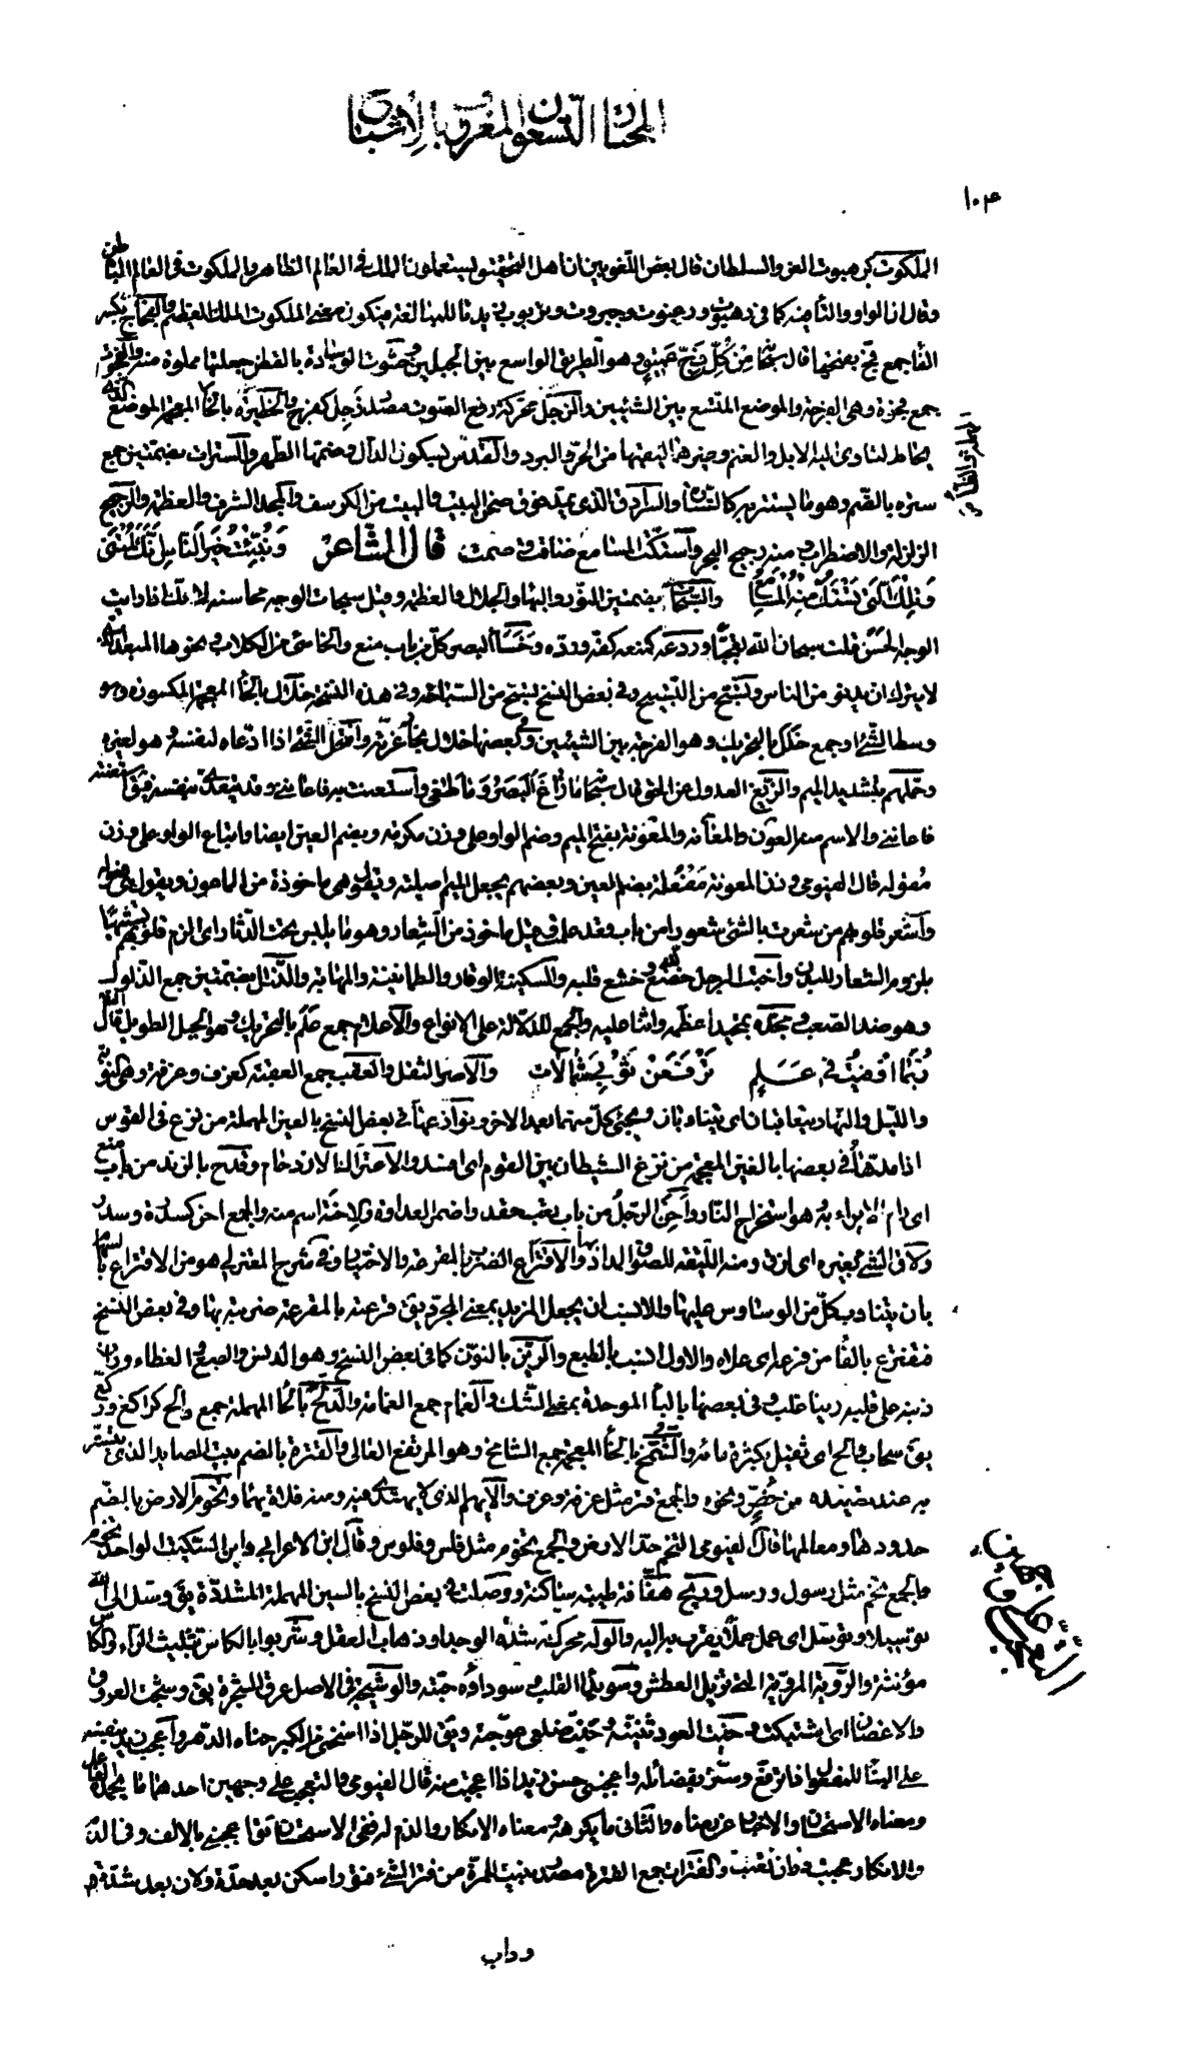 المختار التسعون المعروف بالأشباح
١٠٣
الملكوت كرهبوت العز والسلطان قال بعض اللغويين ان اهل التحقيق يستعملون الملك في العالم الظاهر والملكوت في العالم الباطن
وقال ان الواو والتاء فيه كما في رهبوت ورحموت وجبروت وتربوت زيدتا للمبالغة فيكون معنى الملكوت الملك العظيم والفجاج بكسر
الفاء جمع فج بفتحها قال سبحانه من كل فج عميق وهو الطريق الواسع بين الجبلين وحشوت الوسادة بالقطن جعلتها مملوة منه والفجوات
جمع فجوة وهي الفرجة والموضع المتسع بين الشيئين والزجل محركة رفع الصوت مصدر زجل كفرح والحظيرة بالحاء المهملة والظاء المعجمة الموضع الذي
يحاط لتأوى اليه الابل والغنم وغيرهما لتقيها من الحر والبرد والقدس بسكون الدال وضمها الطهر والسترات بضمتين جمع
سترة بالضم وهو ما يستتر به كالستارة والسرادق الذي يمد فوق صحن البيت والبيت من الكرسف والمجد الشرف والعظمة والرجيج
الزلزلة والاضطراب ومنه رجيج البحر واستكت المسامع ضاقت وصمت قال الشاعر ونبئت خير الناس انك لمتني
وتلك التي تستك منها المسامع والسبحات بضمتين النور والبهاء والجلال والعظمة وقيل سبحات الوجه محاسنه لانك اذا رايت
الوجه الحسن قلت سبحان الله تعجبا وردعه كمنعه كفه ورده وخسأ البصر كل من باب منع والخاسئ من الكلاب ونحوها المبعد
لا يترك ان يدنو من الناس وتسبح من التسبيح وفي بعض النسخ تسبح من السباحة وفي هذه النسخة خلال بالخاء المعجمة المكسورة وهو
وسط الشئ او جمع خلل بالتحريك وهو الفرجة بين الشيئين وفي بعضها خلال بحار عزته وانتحل الشئ اذا ادعاه لنفسه وهو لغيره
وحملهم بتشديد الميم والزيغ العدول عن الحق قال سبحانه ما زاغ البصر وما طغى واستعنت به فاعانني وقد يتعدى بنفسه فيقال استعنته
فاعانني والاسم منه العون والمعانة والمعونة بفتح الميم وضم الواو على وزن مكرمة وبضم العين ايضا واتباع الواو على وزن
مقولة قال الفيومي وزن المعونة مفعلة بضم العين وبعضهم يجعل الميم اصلية ويقول هي ماخوذة من الماعون ويقول هي فعولة
واشعر قلوبهم من شعرت بالشئ شعورا من باب قعد علمت وقيل ماخوذ من الشعار وهو ما يلبس تحت الدثار اى الزم قلوبهم تشبيها
بلزوم الشعار للبدن واخبت الرجل خضع لله وخشع قلبه والسكينة الوقار والطمانينة والمهابة والذلل بضمتين جمع الذلول
وهو ضد الصعب ومجده تمجيدا عظمه واثنا عليه والجمع للدلالة على الانواع والاعلام جمع علم بالتحريك وهو الجبل الطويل قال الشاعر
ربما اوفيت في علم ترفعن ثوبي شمالات والاصر الثقل والعقب جمع العقبة كغرف وغرفة وهي النوبة
والليل والنهار يتعاقبان اى يتناوبان ويجئ كل منهما بعد الاخر ونوازعها في بعض النسخ بالعين المهملة من نزع في القوس
اذا مدها وفي بعضها بالغين المعجمة من نزغ الشيطان بين القوم اى افسد والاعتراك الازدحام وقدح بالزند من باب منع
اى رام الايراء به وهو استخراج النار واحن الرجل من باب تعب حقد واضمر العداوة والاحنة اسم منه والجمع احن كسدرة وسدر
ولاق الشئ بغيره اى لزق ومنه الليقة للصوق المداد بها والاقتراع الضرب بالمقرعة والاختيار وفي شرح المعتزلي هو من الاقتراع بالسهام
بان يتناوب كل من الوساوس عليها والانسب ان يجعل المزيد بمعنى المجرد يقال قرعته بالمقرعة ضربته بها وفي بعض النسخ
فتفترع بالفاء من فرعه اى علاه والاول انسب بالطبع والرين بالنون كما في بعض النسخ وهو الدنس والطبع والغطاء وران
ذنبه على قلبه رينا غلب وفي بعضها بالباء الموحدة بمعنى الشك والغمام جمع الغمامة والدلح بالحاء المهملة جمع دالح كراكع وركع
يقال سحاب دالح اى ثقيل بكثرة مائه والشمخ بالخاء المعجمة جمع الشامخ وهو المرتفع العالي والقترة بالضم بيت الصايد الذي يتستر
به عند تصيده من خص ونحوه والجمع قتر مثل غرفة وغرف والايهم الذي لا يهتدى فيه ومنه فلاة يهماء وتخوم الارض بالضم
حدودها ومعالمها قال الفيومي التخم حد الارض والجمع تخوم مثل فلس وفلوس وقال ابن الاعرابي وابن السكيت الواحد تخوم
والجمع تخم مثل رسول ورسل وريح هفافة طيبة ساكنة ووصلت في بعض النسخ بالسين المهملة المشددة يقال وسل الى الله
توسيلا وتوسل اى عمل عملا يقرب به اليه والوله محركة شدة الوجد او ذهاب العقل وشربوا بالكاس بتثليث الراء والكاس
مؤنثة والروية المروية التي تزيل العطش وسويداء القلب وسوداؤه حبته والوشيجة في الاصل عرق الشجرة يقال وشجت العروق
والاغصان اى اشتبكت وحنيت العود ثنيته وحنيت ضلعي عوجته ويقال للرجل اذا انحنى من الكبر حناه الدهر واعجب زيد بنفسه
على البناء للمفعول اذا ترفع وسر بفضائله واعجبني حسن زيد اذا اعجبت منه قال الفيومي والتعجب على وجهين احدهما ما يحمده الفاعل
ومعناه الاستحسان والاخبار عن رضاه والثاني ما يكرهه ومعناه الانكار والذم له ففي الاستحسان يقال اعجبني بالالف وفي الذم
والانكار عجبت وزان تعبت والفترات جمع الفترة مصدر بنيت للمرة من فتر الشئ فتورا سكن بعد حدة ولان بعد شدة
التعجب على وجهين
وداب